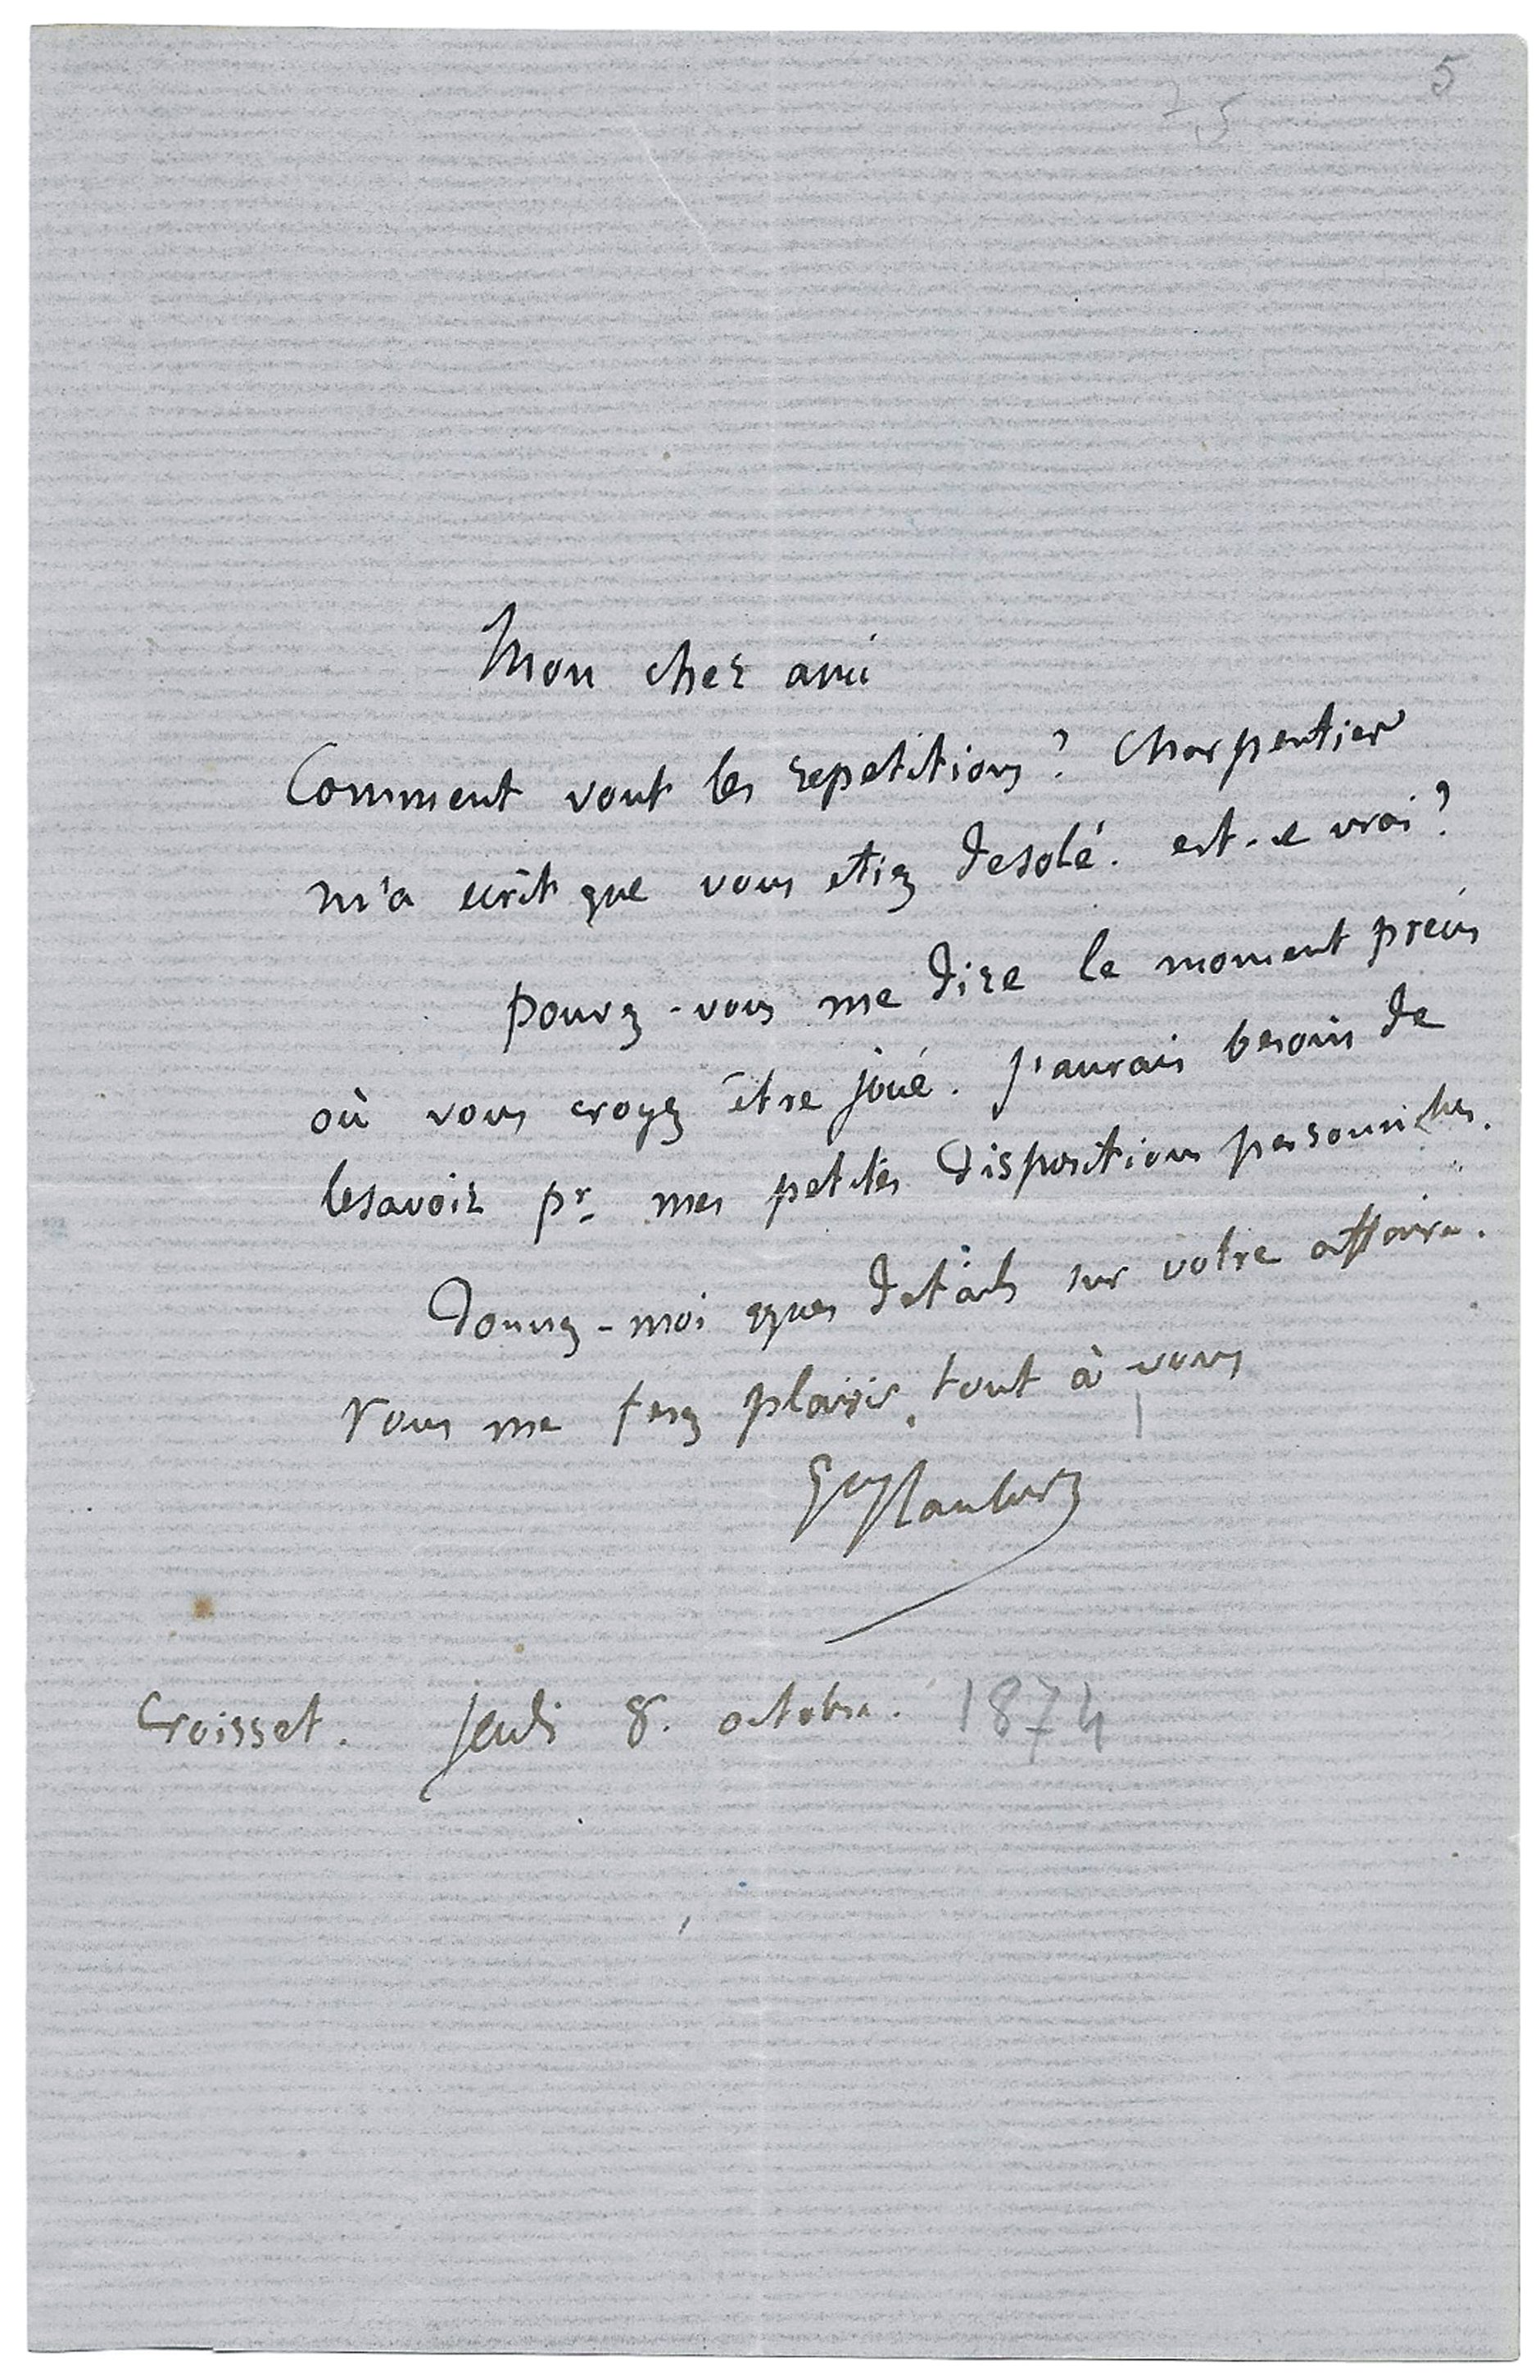 5
75
Mon cher ami
Comment vont les repetitions ? Charpentier
m'a ecrit que vous etiez desolé. est-ce vrai ?
pouvez-vous me dire le moment précis
où vous croyez être joué. J'aurais besoin de
le savoir pr. mes petites dispositions personnelles.
Donnez-moi qques details sur votre affaire.
Vous me ferez plaisir. tout à vous
Gve Flaubert
Croisset. Jeudi 8. octobre. 1874